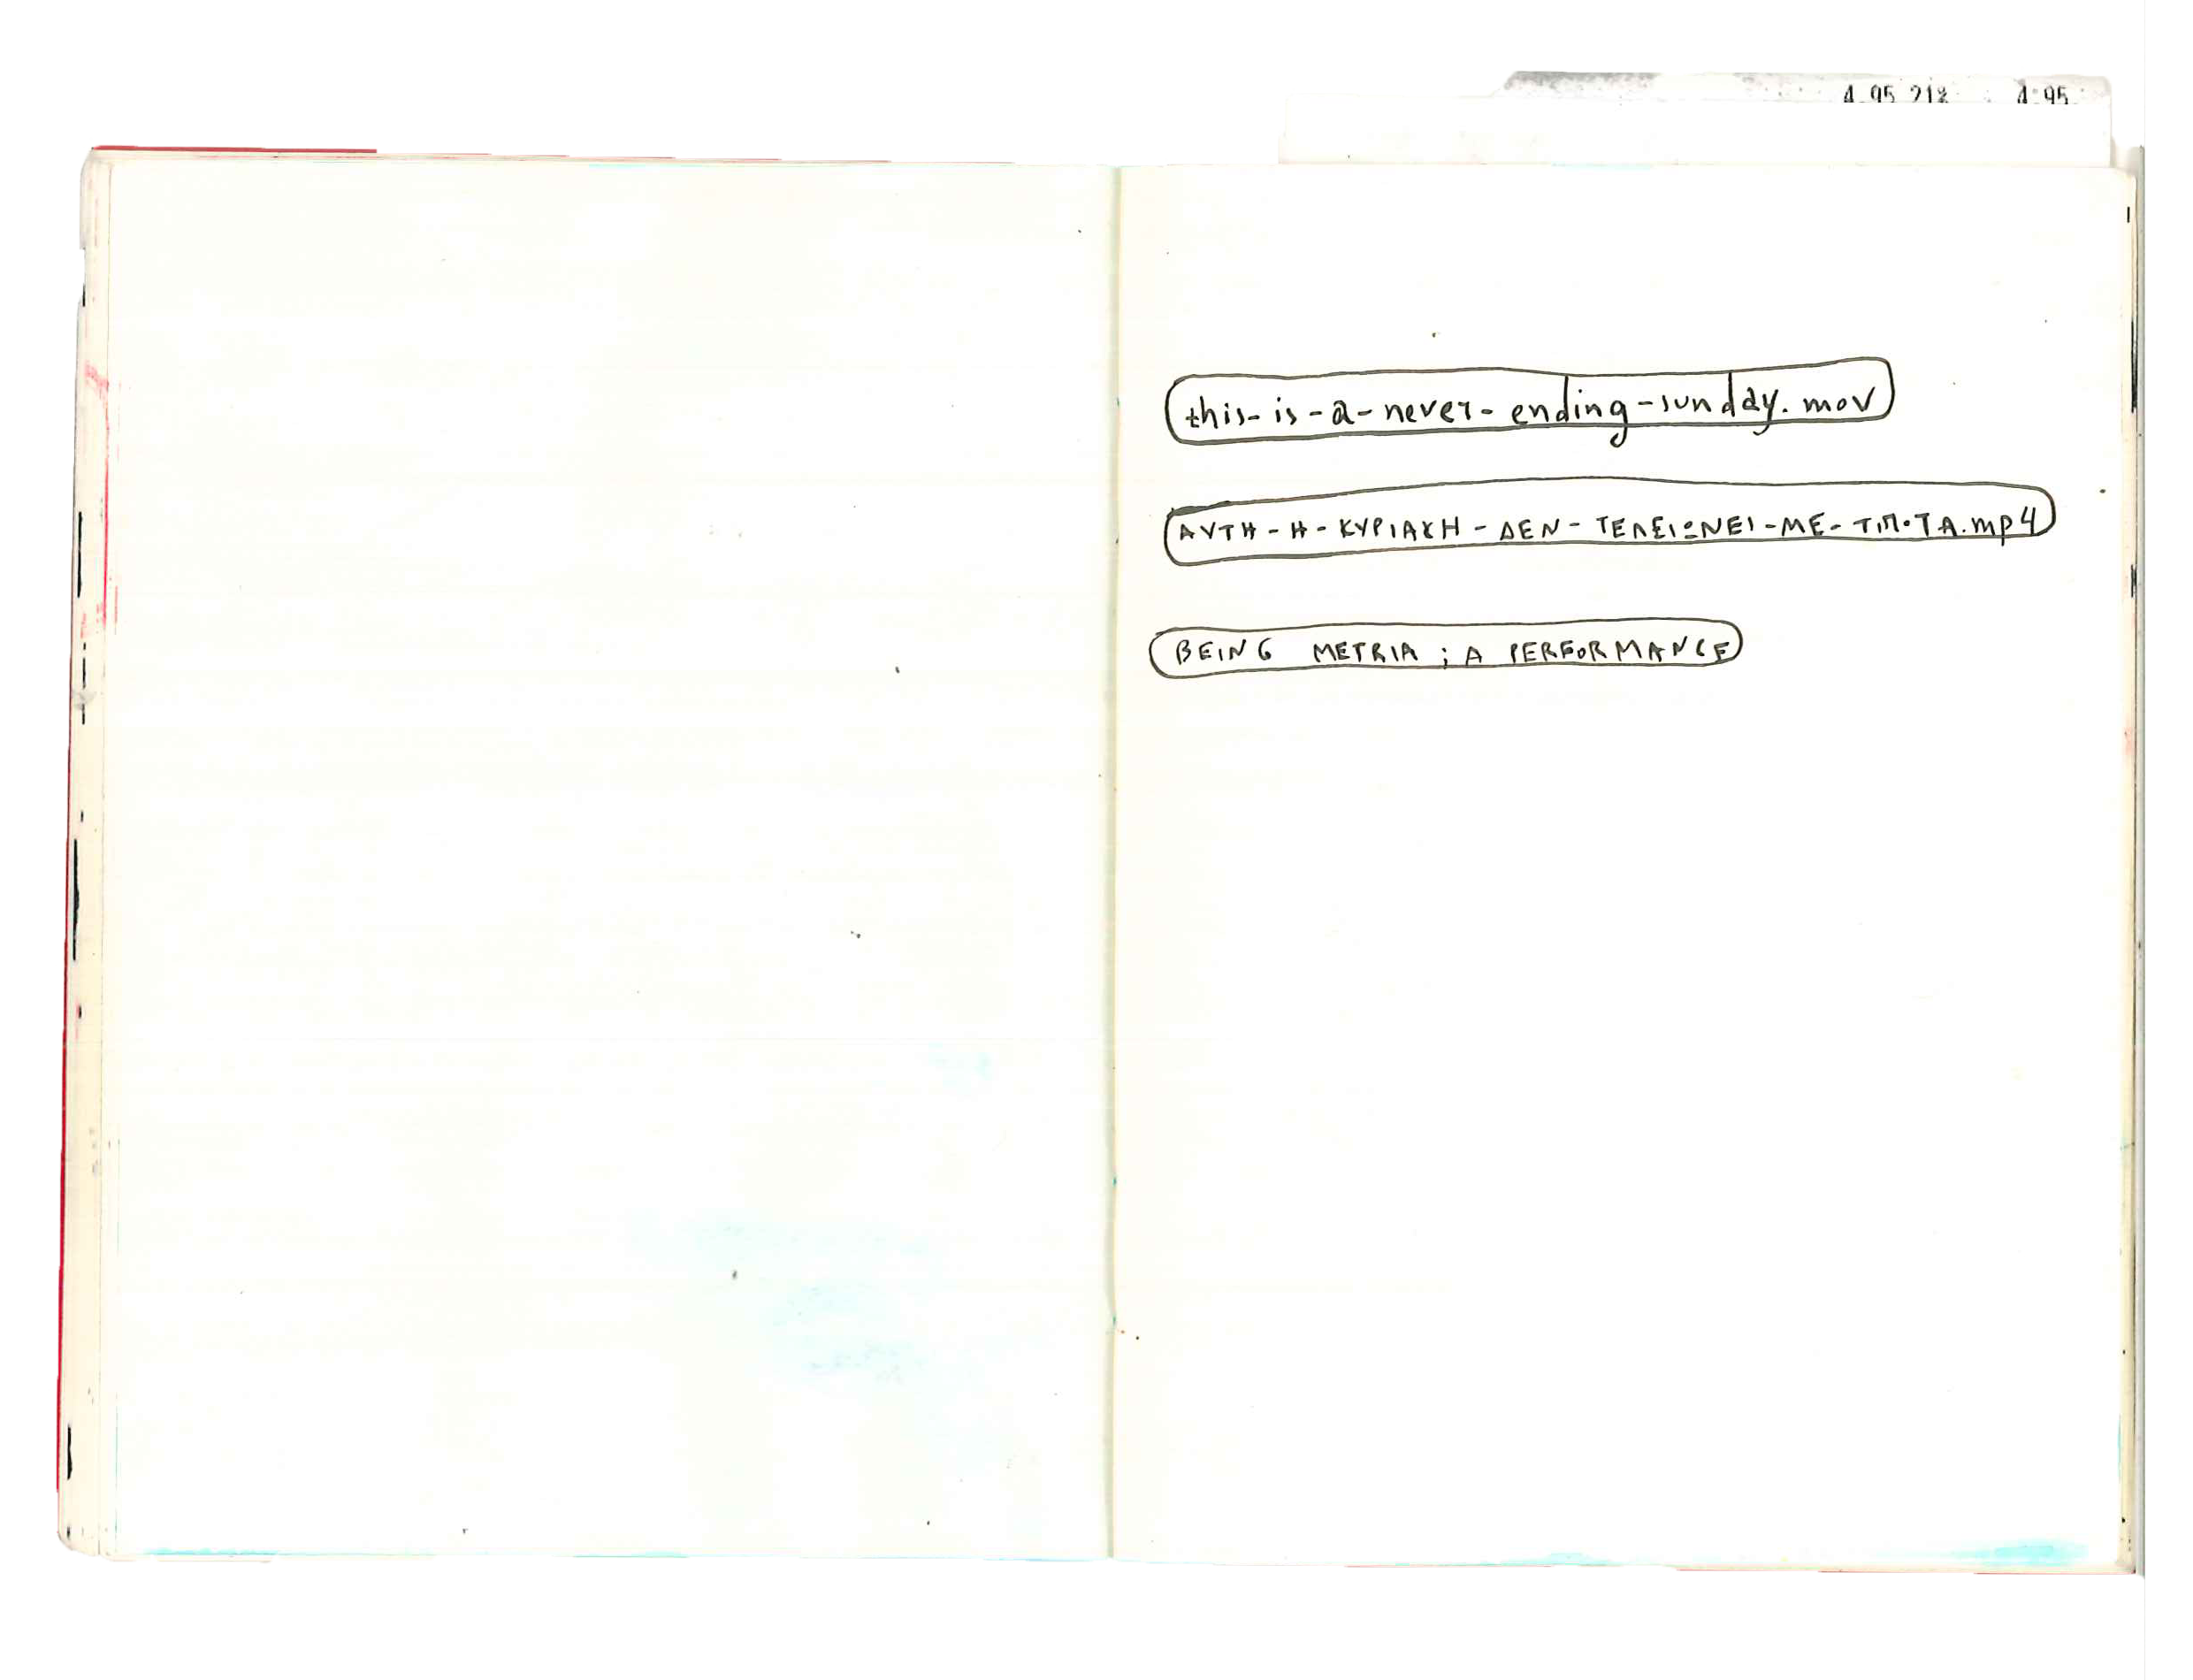 4.95 21% 4.95
this-is-a-never-ending-sunday.mov
ΑΥΤΗ-Η-ΚΥΡΙΑΚΗ-ΔΕΝ-ΤΕΛΕΙΩΝΕΙ-ΜΕ-ΤΙΠΟΤΑ.mp4
BEING METRIA ; A PERFORMANCE